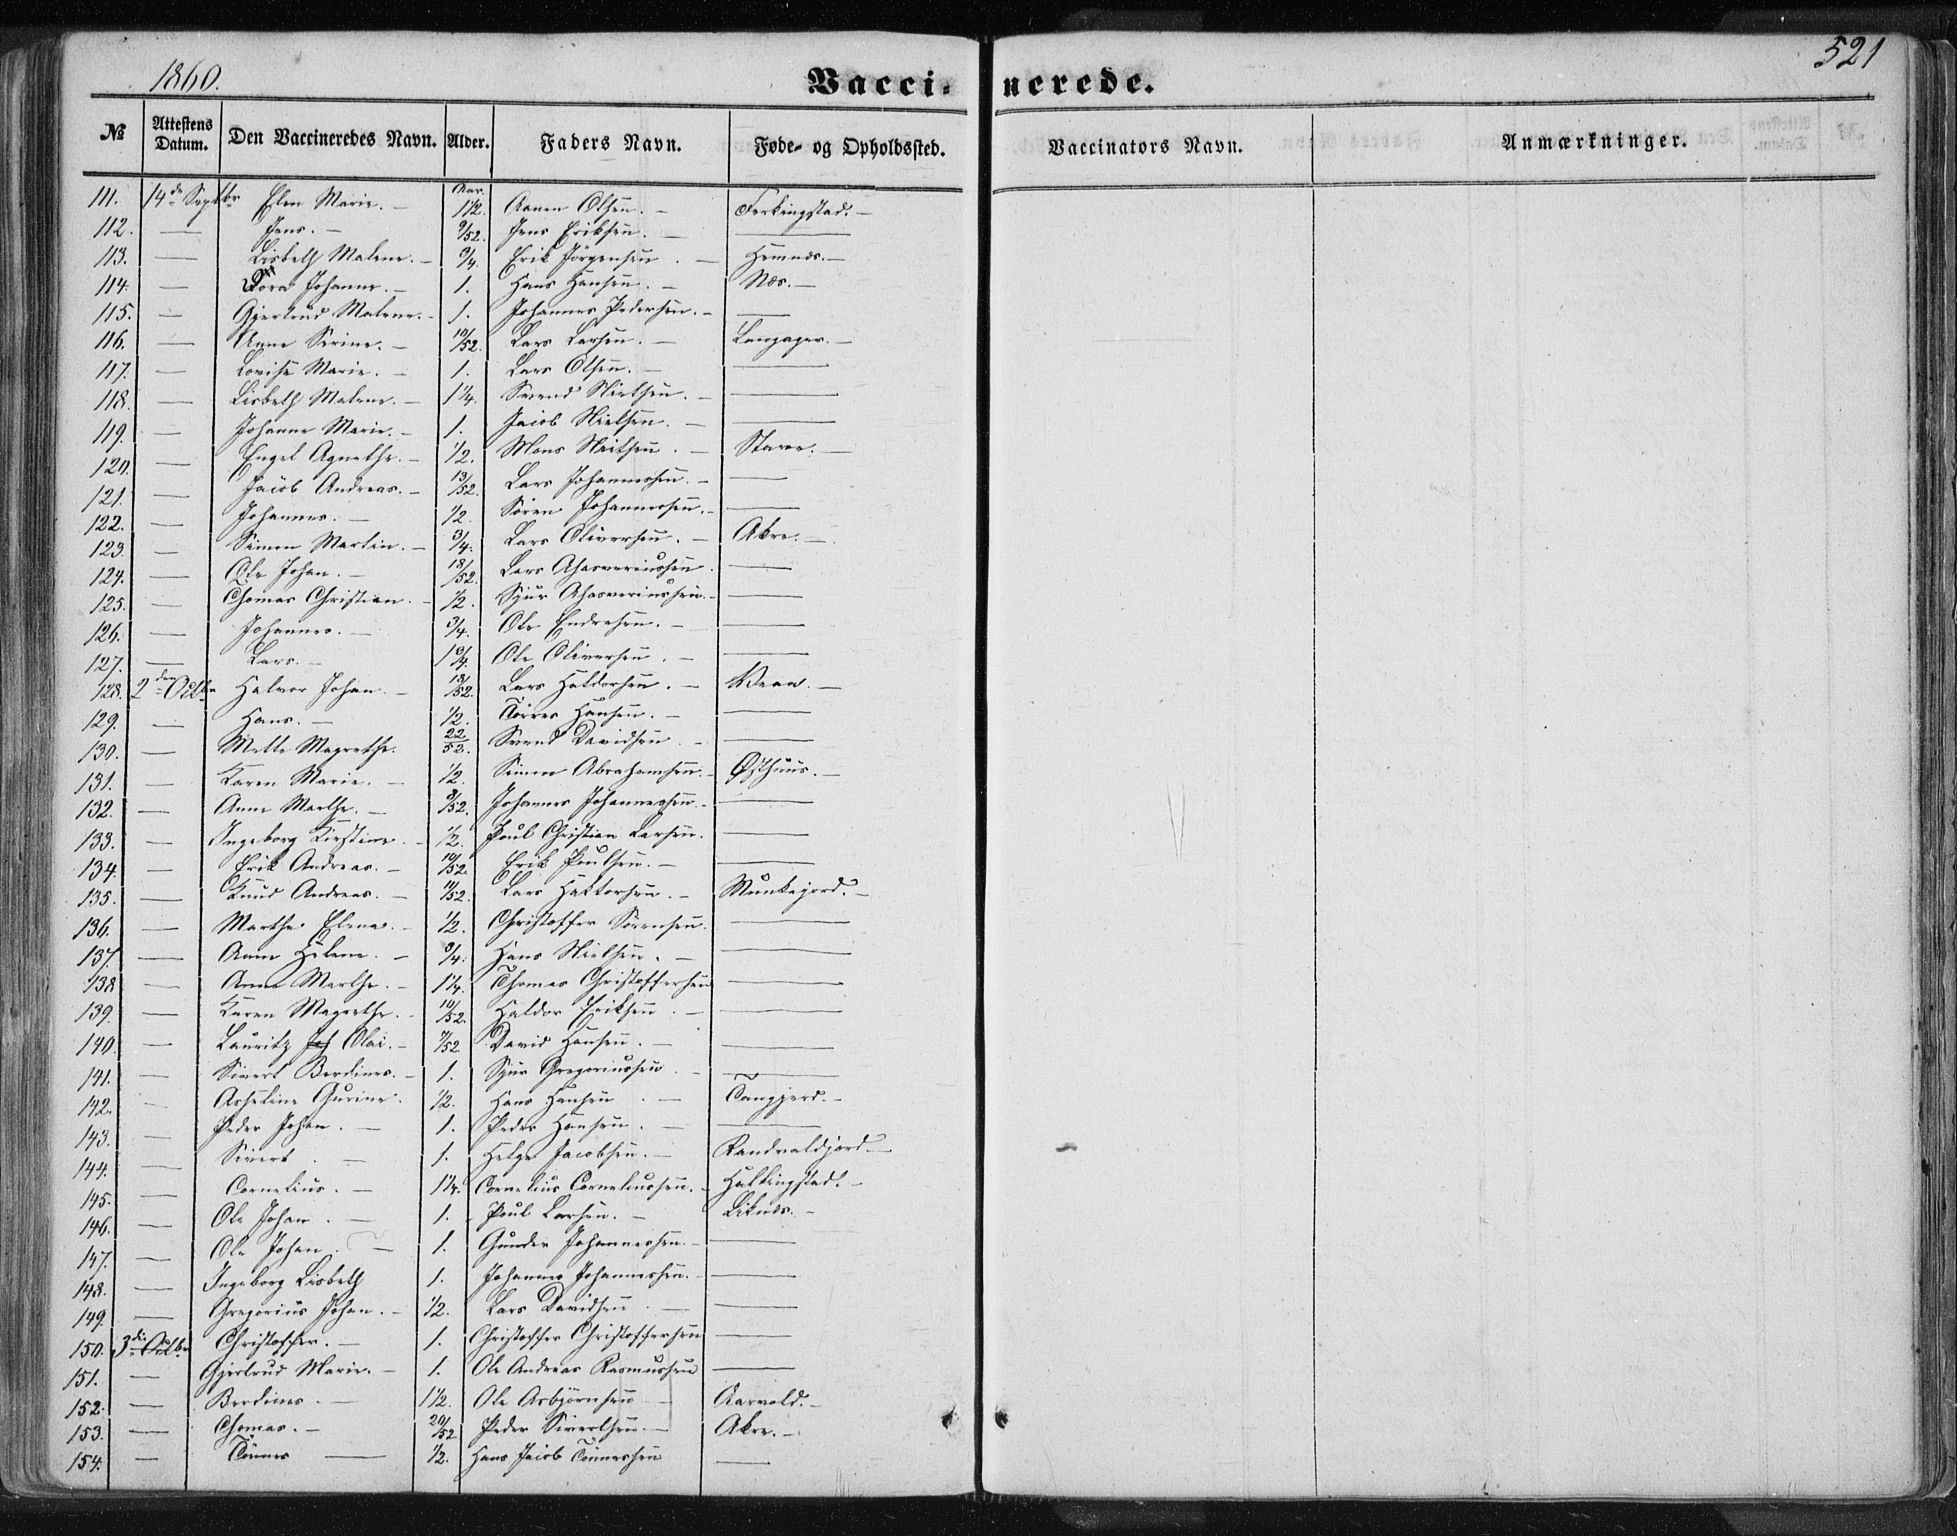 1860.
Vacci-nerede.
521
№ Attestens Datum. Den Vaccineredes Navn. Alder. Faders Navn. Føde- og Opholdssted. Vaccinators Navn. Anmærkninger.
111. 14de Septbr Elen Marie. — Aar. 1 1/2. Aanen Olsen. — Ferkingstad. —
112. — Jens. — 9/52. Jens Eriksen. — —
113. — Lisbeth Malene. — 3/4. Erik Jörgensen. — Hemnes. —
114. — Johanne. — 1. Hans Hansen. — Nes. —
115. — Gjertrud Malene. — 1. Johannes Pedersen. — —
116. — Anne Serine. — 10/52. Lars Larsen. — Langager. —
117. — Lovise Marie. — 1. Lars Olsen. — —
118. — Lisbeth Malene. — 1 1/4. Svend Nielsen. — —
119. — Johanne Marie. — 1. Jacob Nielsen. — —
120. — Engel Agnethe. — 1/2. Mons — Stave. —
121. — Jacob Andreas. — 13/52. Lars Johannessen. — —
122. — Johannes. — 1/2. Sören Johannessen. — —
123. — Simon Martin. — 3/4. Lars Oliversen. — Akre. —
124. — Ole Johan. — 18/52. Lars Ahasveriussen. —
125. — Thomas Christian. — 1/2. Sjur Ahasveriussen. — —
126. — Johannes. — 3/4. Ole Endresen. — —
127. — Lars. — Ole Oliversen. — —
128. 2den Octbr Halvor Johan. — 13/52. Lars Haldorsen. — Vean. —
129. — Hans. — 1/2. Törres Hansen. — —
130. — Mette Magrethe. 22/52. Svend Davidsen. — —
131. — Karen Marie. — 1/2. Simon Abrahamsen. — Østhuus. —
132. — Anne Marthe. — 9/52. Johannes Johannessen. — —
133. — Ingeborg Kirstine. — 1/2. Poul Christian Larsen. —
134. — Erik Andreas. — 10/52. Erik Poulsen. — —
135. — Knud Andreas. — 11/52. Lars Haktorsen. — Munkejord. —
136. — Marthe Elena. — 1/2. Christoffer Sörensen. —
137. — Anne Helene. — 3/4. Hans Nielsen. — —
138 — Anne Marthe. — 1 1/4. Thomas Christoffersen —
139. — Karen Magrethe. — 10/52. Haldor Eriksen. — —
140. — Lauritz Joh Olai. — 7/52. David Hansen. — —
141. — Sivert Berdines. — 1. Sjur Gregoriussen. —
142. — Asseline Gurine. 1/2. Hans Hansen. — Tangjerd. —
143. — Peder Johan. — 1. Peder Hansen. — —
144. — Sivert. — 1. Helge Jacobsen. — Sandvaldjord. —
145. — Cornelius. — 1 1/4. Cornelius Corneliussen. — Hakkingstad. —
146. — Ole Johan. — 1. Poul Larsen. — Liknes. —
147. — Ole Johan. — 1. Gunder Johannessen. — —
148. — Ingeborg Lisbeth 1. Johannes Johannessen. — —
149. — Gregorius Johan. — 1/2. Lars Davidsen. — —
150. 3die Octbr Christoffer. — 1. Christoffer Christoffersen —
151. — Gjertrud Marie. — 1. Ole Andreas Rasmussen —
152. — Berdines. — 1 1/2. Ole Asbjörnsen — Aarvold. —
153. — Thomas. — 20/52 Peder Sivertsen. — Akre. —
154. — Tönnes — 1/2. Hans Jacob Tönnessen —